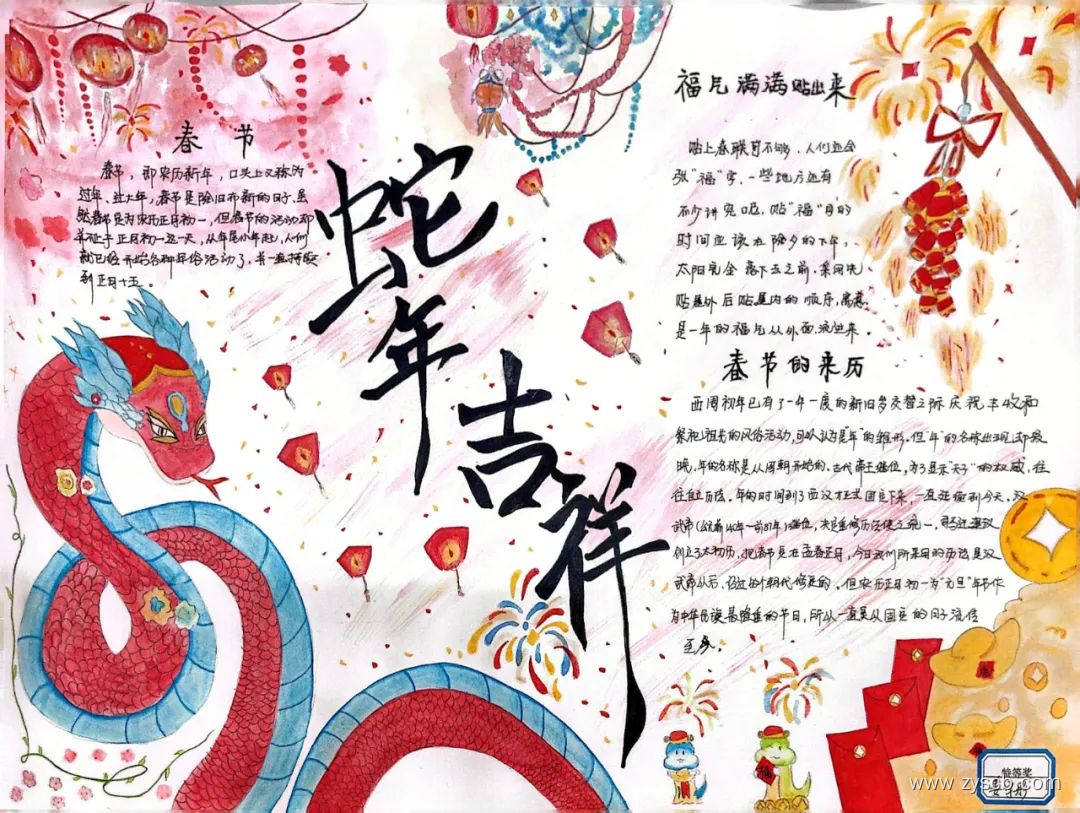 春节
春节，即农历新年，口头上又称为
过年、过大年，春节是除旧布新的日子，虽
然春节是为农历正月初一，但春节的活动却
并不止于正月初一这一天，从年尾小年起，人们
就已经开始各种年俗活动了，并一直持续
到正月十五。
蛇年吉祥
福气满满贴出来
贴上春联可不够，人们还会
张"福"字，一些地方还有
不少讲究呢，贴"福"的
时间应该在除夕的下午，
太阳完全落下去之前，采用先
贴屋外后贴屋内的顺序，寓意
是一年的福气从外面流进来。
春节的来历
西周初年已有了一年一度的新旧岁交替之际庆祝丰收和
祭祀祖先的风俗活动，可以认为是"年"的雏形。但"年"的名称出现却最
晚，年的名称是从周朝开始的，古代帝王继位，为了显示"天子"的权威，往
往自立历法，年的时间到了西汉才正式固定下来，一直延续到今天。汉
武帝（公元前140年一前87年）继位，决定重修历法使之统一，司马迁建议
创立了太初历，把春节定在孟春正月，今日我们所采用的历法是汉
武帝以后，经过的朝代修定的。但农历正月初一为"元旦"年节作
为中华民族最隆重的节日，所以一直是从固定的日子流传
至今。
特等奖
www.zyscb.com